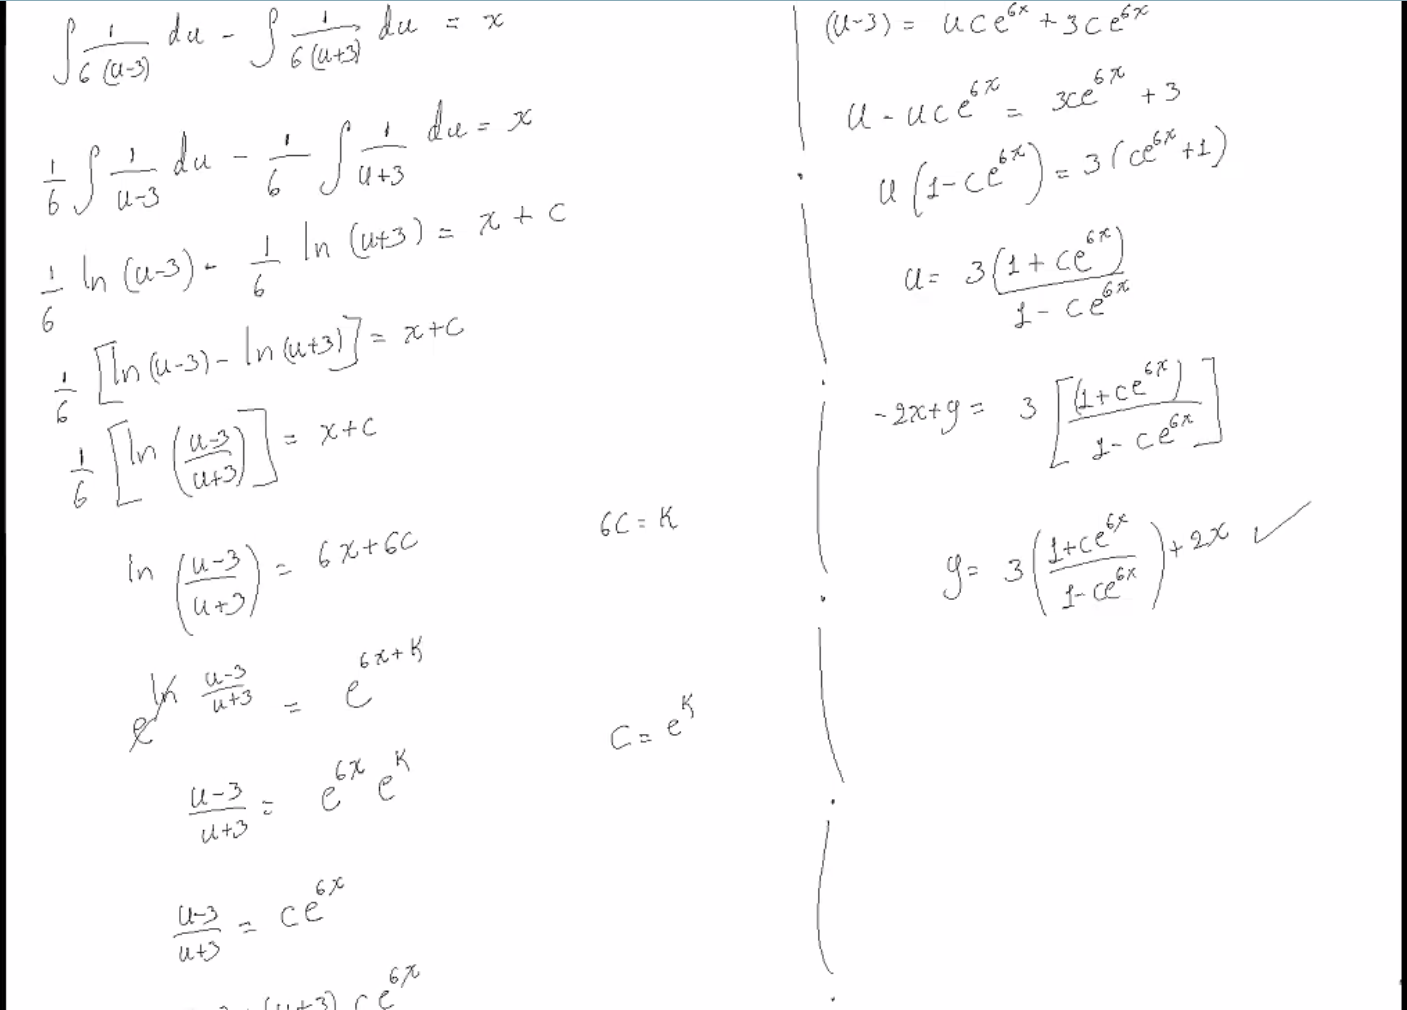 ∫ 1/6(u-3) du - ∫ 1/6(u+3) du = x
1/6 ∫ 1/u-3 du - 1/6 ∫ 1/u+3 du = x
1/6 ln (u-3) - 1/6 ln (u+3) = x + c
1/6 [ln (u-3) - ln (u+3)] = x+c
1/6 [ln (u-3/u+3)] = x+c
ln (u-3/u+3) = 6x+6c
6C = K
e^ln u-3/u+3 = e^6x+K
C = e^K
u-3/u+3 = e^6x e^K
u-3/u+3 = ce^6x
(u+3) ce^6x
(u-3) = uce^6x + 3ce^6x
u - uce^6x = 3ce^6x + 3
u (1-ce^6x) = 3 (ce^6x +1)
u = 3(1+ce^6x)/1-ce^6x
-2x+y = 3 [(1+ce^6x)/1-ce^6x]
y = 3 (1+ce^6x/1-ce^6x) + 2x ✓